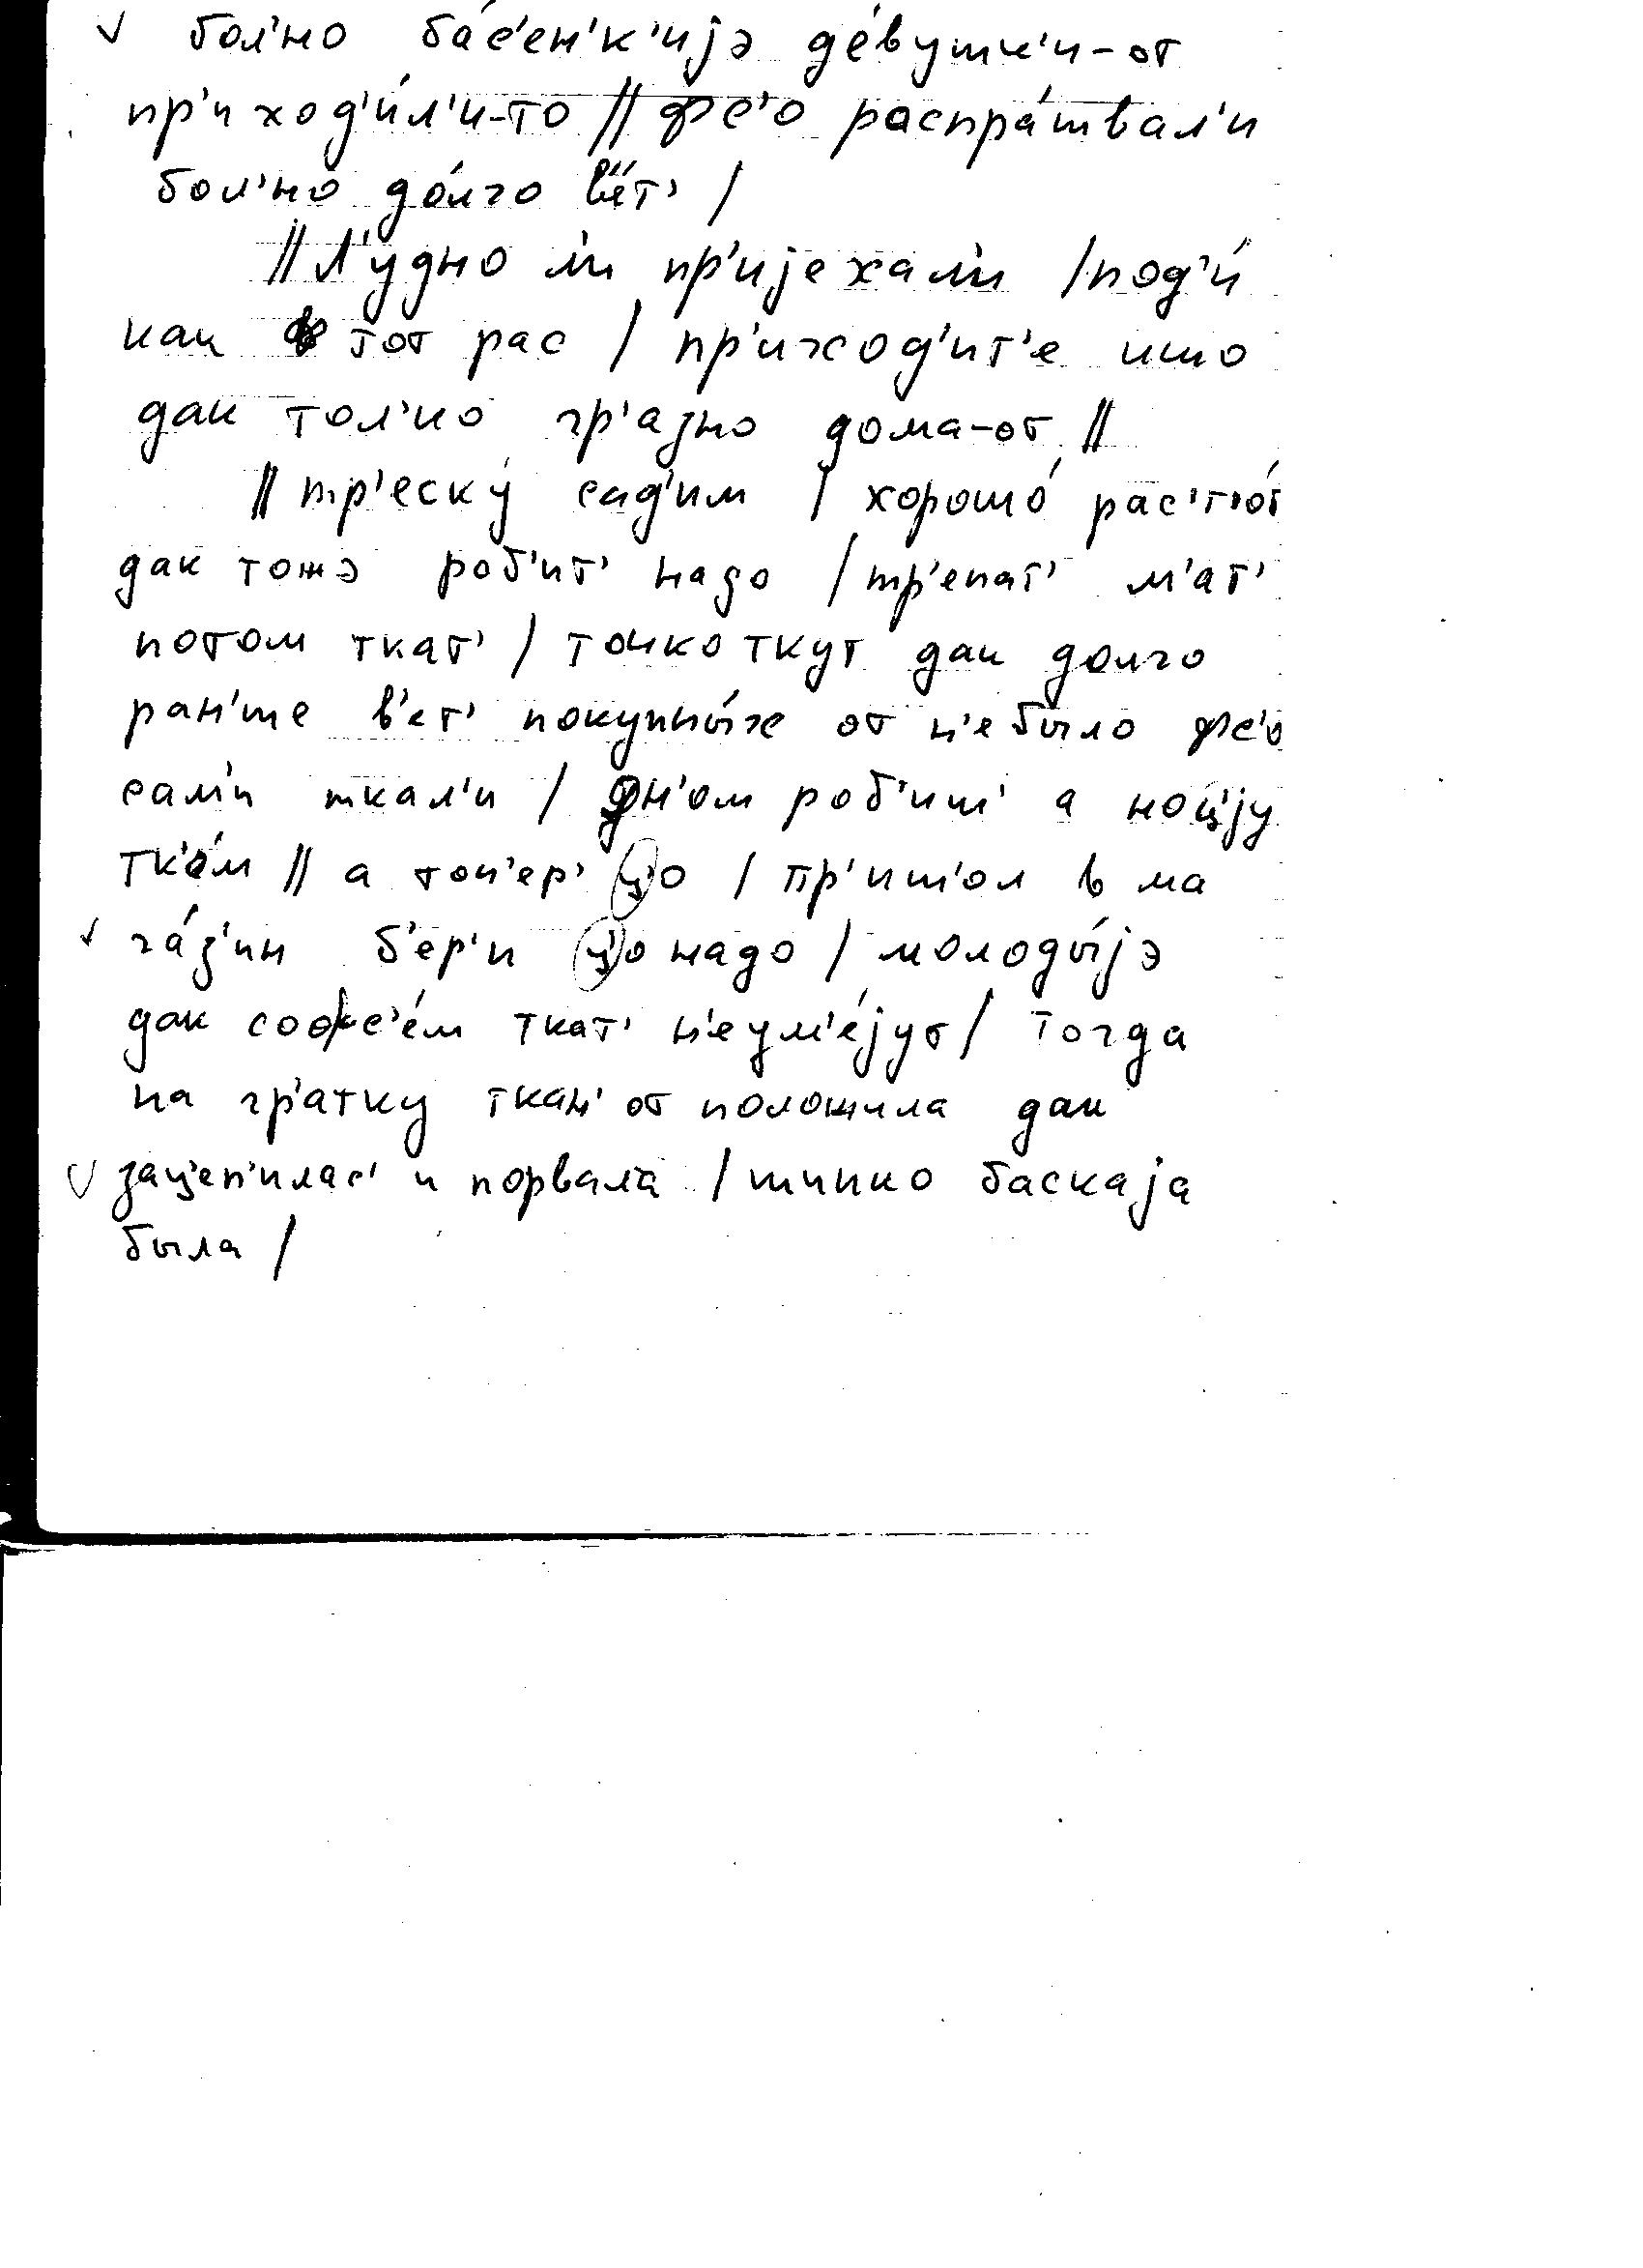 бол'но ба́с'ен'к'иjэ де́вушк'и-от
пр'иход'и́л'и-то || фс'о распра́швал'и
бол'но до́лго в'ет' /
|| Л'удно л'и пр'иjехал'и / под'и́
как ф тот рас / пр'иход'ит'е ишо
дак тол'ко гр'азно дома-от ||
|| тр'еску́ сад'им / хорошо́ рас'т'о́т
дак тожэ роб'ит' надо / тр'епат' м'ат'
потом ткат' / тонко ткут дак долго
ран'ше в'ет' покупны́х от н'ебыло фс'о
сам'и ткал'и / дн'ом роб'иш' а ноц'jу
тк'о́м || а топ'ер' ц'о / пр'иш'ол в ма
га́з'ин б'ер'и ц'о надо / молоды́jэ
дак софс'е́м ткат' н'еум'е́jут / тогда
на гр'атку ткан' от положила дак
зац'еп'илас' и порвала / шипко баскаjа
была /